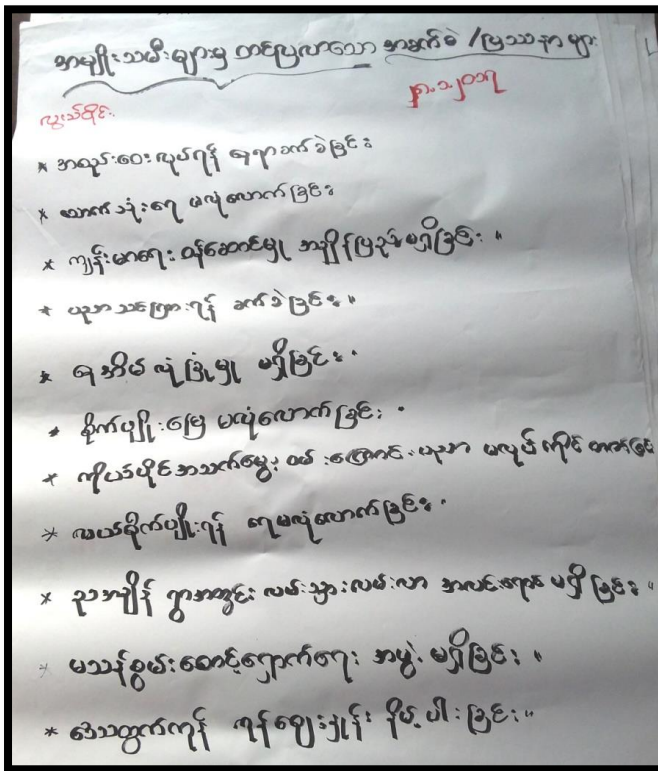 အမျိုးသမီးများမှ တင်ပြလာသော အခက်ခဲ / ပြဿနာများ
လွယ်ပိုင်း
* အလုပ်ဝေးလုပ်ရန် ရှာရခက်ခဲခြင်း
* သောက်သုံးရေ မလုံလောက်ခြင်း
* ကျန်းမာရေး ဝန်ဆောင်မှု အချိန်ပြည့်မရှိခြင်း ။
* ပညာသင်ကြားရန် ခက်ခဲခြင်း ။
* နေအိမ် လုံခြုံမှု မရှိခြင်း ။
* စိုက်ပျိုးမြေ မလုံလောက်ခြင်း ။
* ကိုယ်ပိုင်အသက်မွေး ဝမ်းကျောင်းပညာ မလုပ်ကိုင်တတ်ခြင်း
* လယ်စိုက်ပျိုးရန် ရေမလုံလောက်ခြင်း ။
* ညအချိန် ရွာအတွင်း လမ်းသွားလမ်းလာ အလင်းရောင် မရှိခြင်း ။
* မသန်စွမ်းစောင့်ရှောက်ရေး အဖွဲ့ မရှိခြင်း ။
* ဒေသထွက်ကုန် ကုန်ဈေးနှုန်း နိမ့်ပါးခြင်း ။